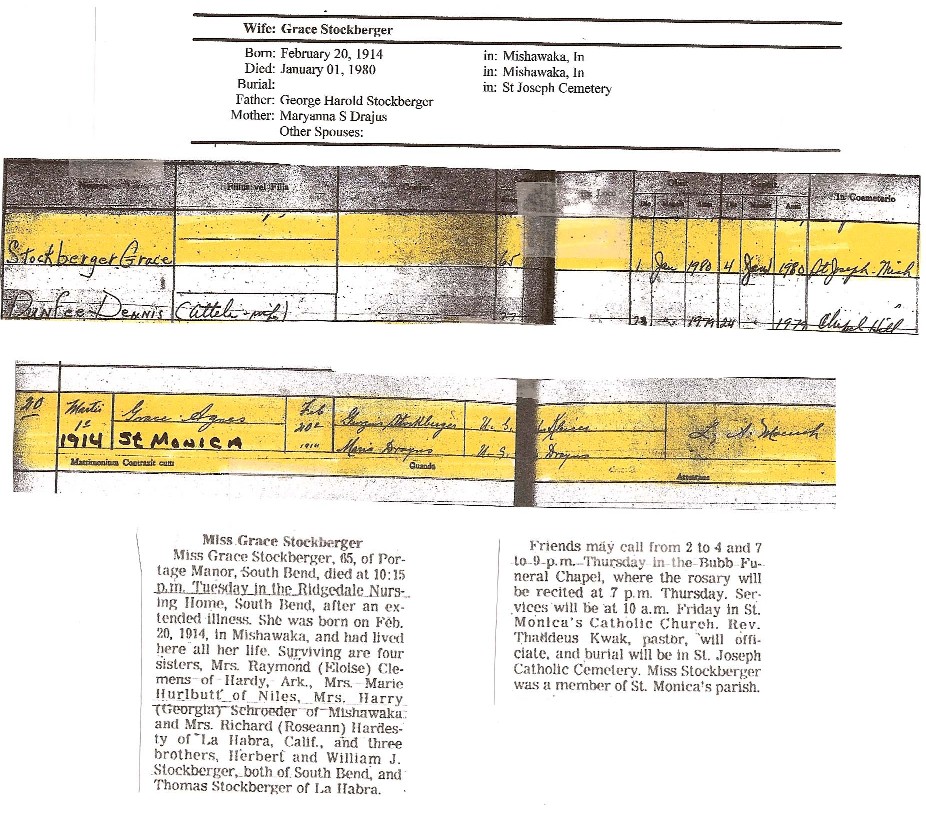 Wife: Grace Stockberger
Born: February 20, 1914 in: Mishawaka, In
Died: January 01, 1980 in: Mishawaka, In
Burial: in: St Joseph Cemetery
Father: George Harold Stockberger
Mother: Maryanna S Drajus
Other Spouses:
Filius vel Filia
In Coemeterio
Stockberger Grace 65 1 Jan 1980 4 Jan 1980 St Joseph - Mish
Dunfee Dennis 1979 24 1979 Chapel Hill
20 Martii Grace Agnes Feb Stockberger U. S.
1º 20º
1914 St MONICA 1914 Maria Dragus U. S. Dragus
Matrimonium Contraxit cum Quando
Miss Grace Stockberger
Miss Grace Stockberger, 65, of Por-
tage Manor, South Bend, died at 10:15
p.m. Tuesday in the Ridgedale Nurs-
ing Home, South Bend, after an ex-
tended illness. She was born on Feb.
20, 1914, in Mishawaka, and had lived
here all her life. Surviving are four
sisters, Mrs. Raymond (Eloise) Cle-
mens of Hardy, Ark., Mrs. Marie
Hurlbutt of Niles, Mrs. Harry
(Georgia) Schroeder of Mishawaka
and Mrs. Richard (Roseann) Hardes-
ty of La Habra, Calif., and three
brothers, Herbert and William J.
Stockberger, both of South Bend, and
Thomas Stockberger of La Habra.
Friends may call from 2 to 4 and 7
to 9 p.m. Thursday in the Bubb Fu-
neral Chapel, where the rosary will
be recited at 7 p.m. Thursday. Ser-
vices will be at 10 a.m. Friday in St.
Monica's Catholic Church. Rev.
Thaddeus Kwak, pastor, will offi-
ciate, and burial will be in St. Joseph
Catholic Cemetery. Miss Stockberger
was a member of St. Monica's parish.